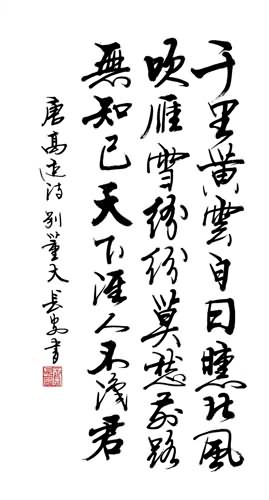 千里黄雲白日曛北風
吹雁雪紛紛莫愁前路
無知己天下誰人不識君
唐高適詩别董大長安書